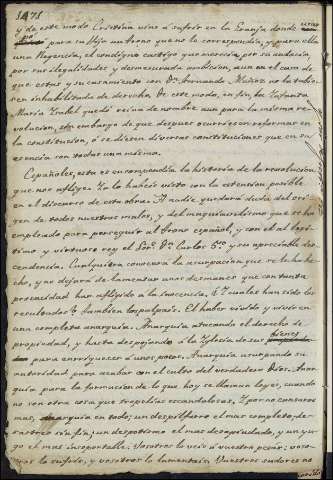 1471
y de este modo Cristina vino a sufrir en la Granja donde
para su hija un trono que no le correspondia, y para ella
una Regencia, el condigno castigo que merecia, por su audacia
por sus ilegalidades, y desmesurada ambicion, aun en el caso de
que estas y su casamiento con Dn. Fernando Muñoz no la hubie-
sen inhabilitado de derecho. De este modo, en fin, la Infanta
Maria Isabel quedó reina de nombre aun para la misma re-
volucion, sin embargo de que despues ocurriesen reformar en
la constitucion, ó se diesen diversas constituciones que en su
esencia son todas una misma.
Españoles, esta es en compendio la historia de la revolucion
que nos aflige. Ya la habeis visto con la estension posible
en el discurso de esta obra. A nadie quedará duda del ori-
gen de todos nuestros males, y del maquiavelismo que se ha
empleado para perseguir al trono español, y con él al legi-
timo y virtuoso rey el Sor. Dn. Carlos 5º. y su apreciable des-
cendencia. Cualquiera conocerá la usurpacion que se le ha he-
cho, y no dejará de lamentar unos desmanes que con tanta
procacidad han afligido a la inocencia. ¿Y cuales han sido los
resultados? tambien los palpais. El haber vivido y vivir en
una completa anarquia. Anarquia atacando el derecho de
propiedad, y hasta despojando a la Iglesia de sus bienes
para enriquecer á unos pocos. Anarquia usurpando su
autoridad para acabar con el culto del verdadero Dios. Anar-
quia para la formacion de lo que hoy se llaman leyes, cuando
no son otra cosa que tropelias escandalosas. Y por no cansaros
mas, anarquia en todo; un despilfarro el mas completo, de-
sastres sin fin; un despotismo el mas descapillado, y un yu-
go el mas insoportable. Vosotros lo veis á vuestro pesar: voso-
tros lo sufris, y vosotros lo lamentais. Vuestros sudores no